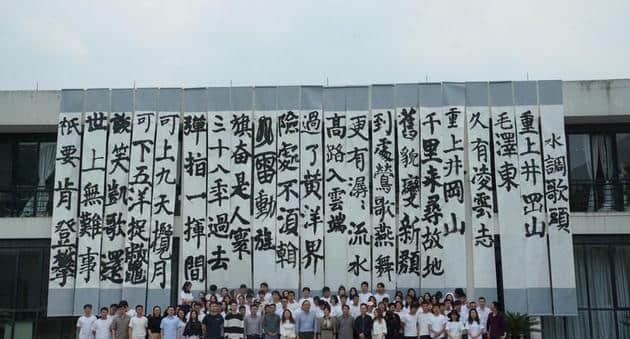 水調歌頭
重上井岡山
毛澤東
久有凌雲志
重上井岡山
千里來尋故地
舊貌變新顏
到處鶯歌燕舞
更有潺〻流水
高路入雲端
過了黃洋界
險處不須看
風雷動旌
旗奮是人寰
三十八年過去
彈指一揮間
可上九天攬月
可下五洋捉鱉
談笑凱歌還
世上無難事
祇要肯登攀